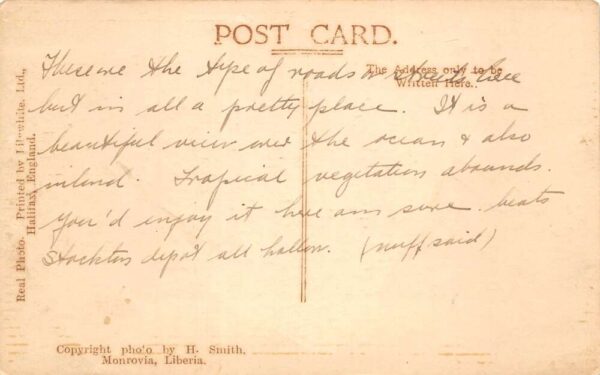 POST CARD.
The Address only to be
Written Here.
These are the type of roads or streets here
but in all a pretty place. It is a
beautiful view over the ocean & also
inland. Tropical vegetation abounds.
You'd enjoy it here am sure. beats
Stockton depot all hollow. (nuff said)
Real Photo. Printed by Lilywhite, Ltd.,
Halifax, England.
Copyright photo by H. Smith,
Monrovia, Liberia.